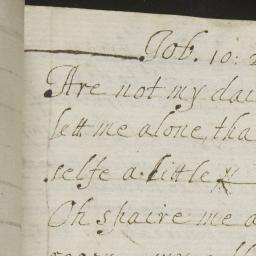 Job. 10: 2
Are not my dai
lett me alone tha
selfe a little
Oh spaire me a